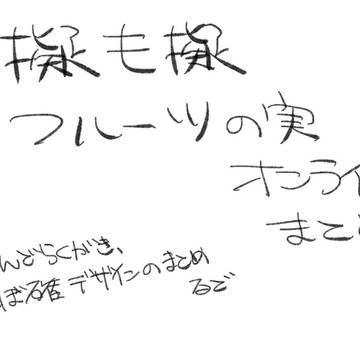 擬も擬
フルーツの実
オンライ
まと
んどらくがき、
ほぼ確定デザインのまとめ
るで